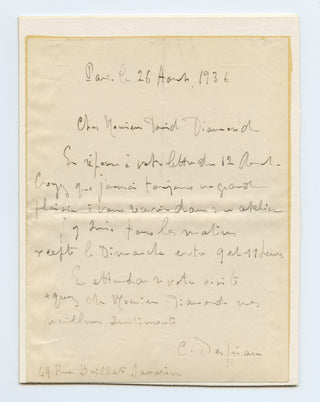 Paris le 26 Aout 1936
Cher Monsieur David Diamond
En réponse à votre lettre du 12 Aout.
Croyez que j'aurai toujours un grand
plaisir à vous recevoir dans mon atelier
j'y suis tous les matins
excepté le Dimanche entre 9 et 11 heures
En attendant votre visite
agréez cher Monsieur Diamond mes
meilleurs sentiments
C. Despiau
49 Rue Brillat Savarin